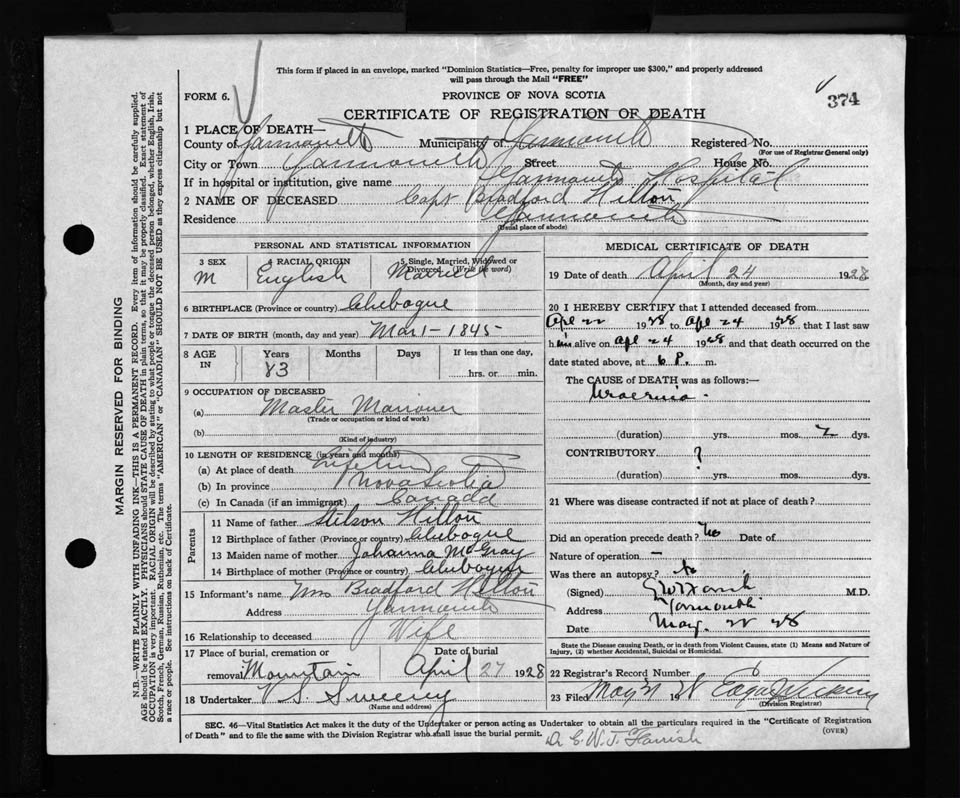 This form if placed in an envelope, marked "Dominion Statistics—Free, penalty for improper use $300," and properly addressed
will pass through the Mail "FREE"
374
FORM 6.
PROVINCE OF NOVA SCOTIA
CERTIFICATE OF REGISTRATION OF DEATH
1 PLACE OF DEATH—
County of Yarmouth Municipality of Yarmouth Registered No.
(For use of Registrar General only)
City or Town Yarmouth Street House No.
If in hospital or institution, give name Yarmouth Hospital
2 NAME OF DECEASED Capt Bradford Hilton
Residence Yarmouth
(Usual place of abode)
PERSONAL AND STATISTICAL INFORMATION
3 SEX 4 RACIAL ORIGIN 5 Single, Married, Widowed or
Divorced (Write the word)
M English Married
6 BIRTHPLACE (Province or country) Chebogue
7 DATE OF BIRTH (month, day and year) Mar 1 - 1845
8 AGE IN Years Months Days If less than one day,
83 hrs. or min.
9 OCCUPATION OF DECEASED
(a) Master Mariner
(Trade or occupation or kind of work)
(b)
(Kind of industry)
10 LENGTH OF RESIDENCE (in years and months)
(a) At place of death Lifetime
(b) In province Nova Scotia
(c) In Canada (if an immigrant) Canada
Parents
11 Name of father Stilson Hilton
12 Birthplace of father (Province or country) Chebogue
13 Maiden name of mother Johanna McGray
14 Birthplace of mother (Province or country) Chebogue
15 Informant's name Mrs Bradford Hilton
Address Yarmouth
16 Relationship to deceased Wife
17 Place of burial, cremation or Date of burial
removal Mountain April 27 1928
18 Undertaker V S Sweeny
(Name and address)
MEDICAL CERTIFICATE OF DEATH
19 Date of death April 24 1928
(Month, day and year)
20 I HEREBY CERTIFY that I attended deceased from
Apl 22 1928 to Apl 24 1928, that I last saw
him alive on Apl 24 1928 and that death occurred on the
date stated above, at 6 P. m.
The CAUSE of DEATH was as follows:—
Uraemia.
(duration) yrs. mos. 2 dys.
CONTRIBUTORY ?
(duration) yrs. mos. dys.
21 Where was disease contracted if not at place of death?
Did an operation precede death? No Date of
Nature of operation —
Was there an autopsy?
(Signed) M.D.
Address Yarmouth
Date May. 28
State the Disease causing Death, or in death from Violent Causes, state (1) Means and Nature of
Injury, (2) whether Accidental, Suicidal or Homicidal.
22 Registrar's Record Number
23 Filed May
(Division Registrar)
SEC. 46—Vital Statistics Act makes it the duty of the Undertaker or person acting as Undertaker to obtain all the particulars required in the "Certificate of Registration
of Death" and to file the same with the Division Registrar who shall issue the burial permit.
(OVER)
MARGIN RESERVED FOR BINDING
N.B.—WRITE PLAINLY WITH UNFADING INK—THIS IS A PERMANENT RECORD. Every item of information should be carefully supplied.
AGE should be stated EXACTLY. PHYSICIANS should STATE CAUSE OF DEATH in plain terms, so that it may be properly classified. Exact statement of
OCCUPATION is very important. RACIAL ORIGIN will be described by stating to what people or tongue the deceased person belonged, whether English, Irish,
Scotch, French, German, Russian, Ruthenian, etc. The terms "AMERICAN" or "CANADIAN" SHOULD NOT BE USED as they express citizenship but not
a race or people. See instructions on back of Certificate.